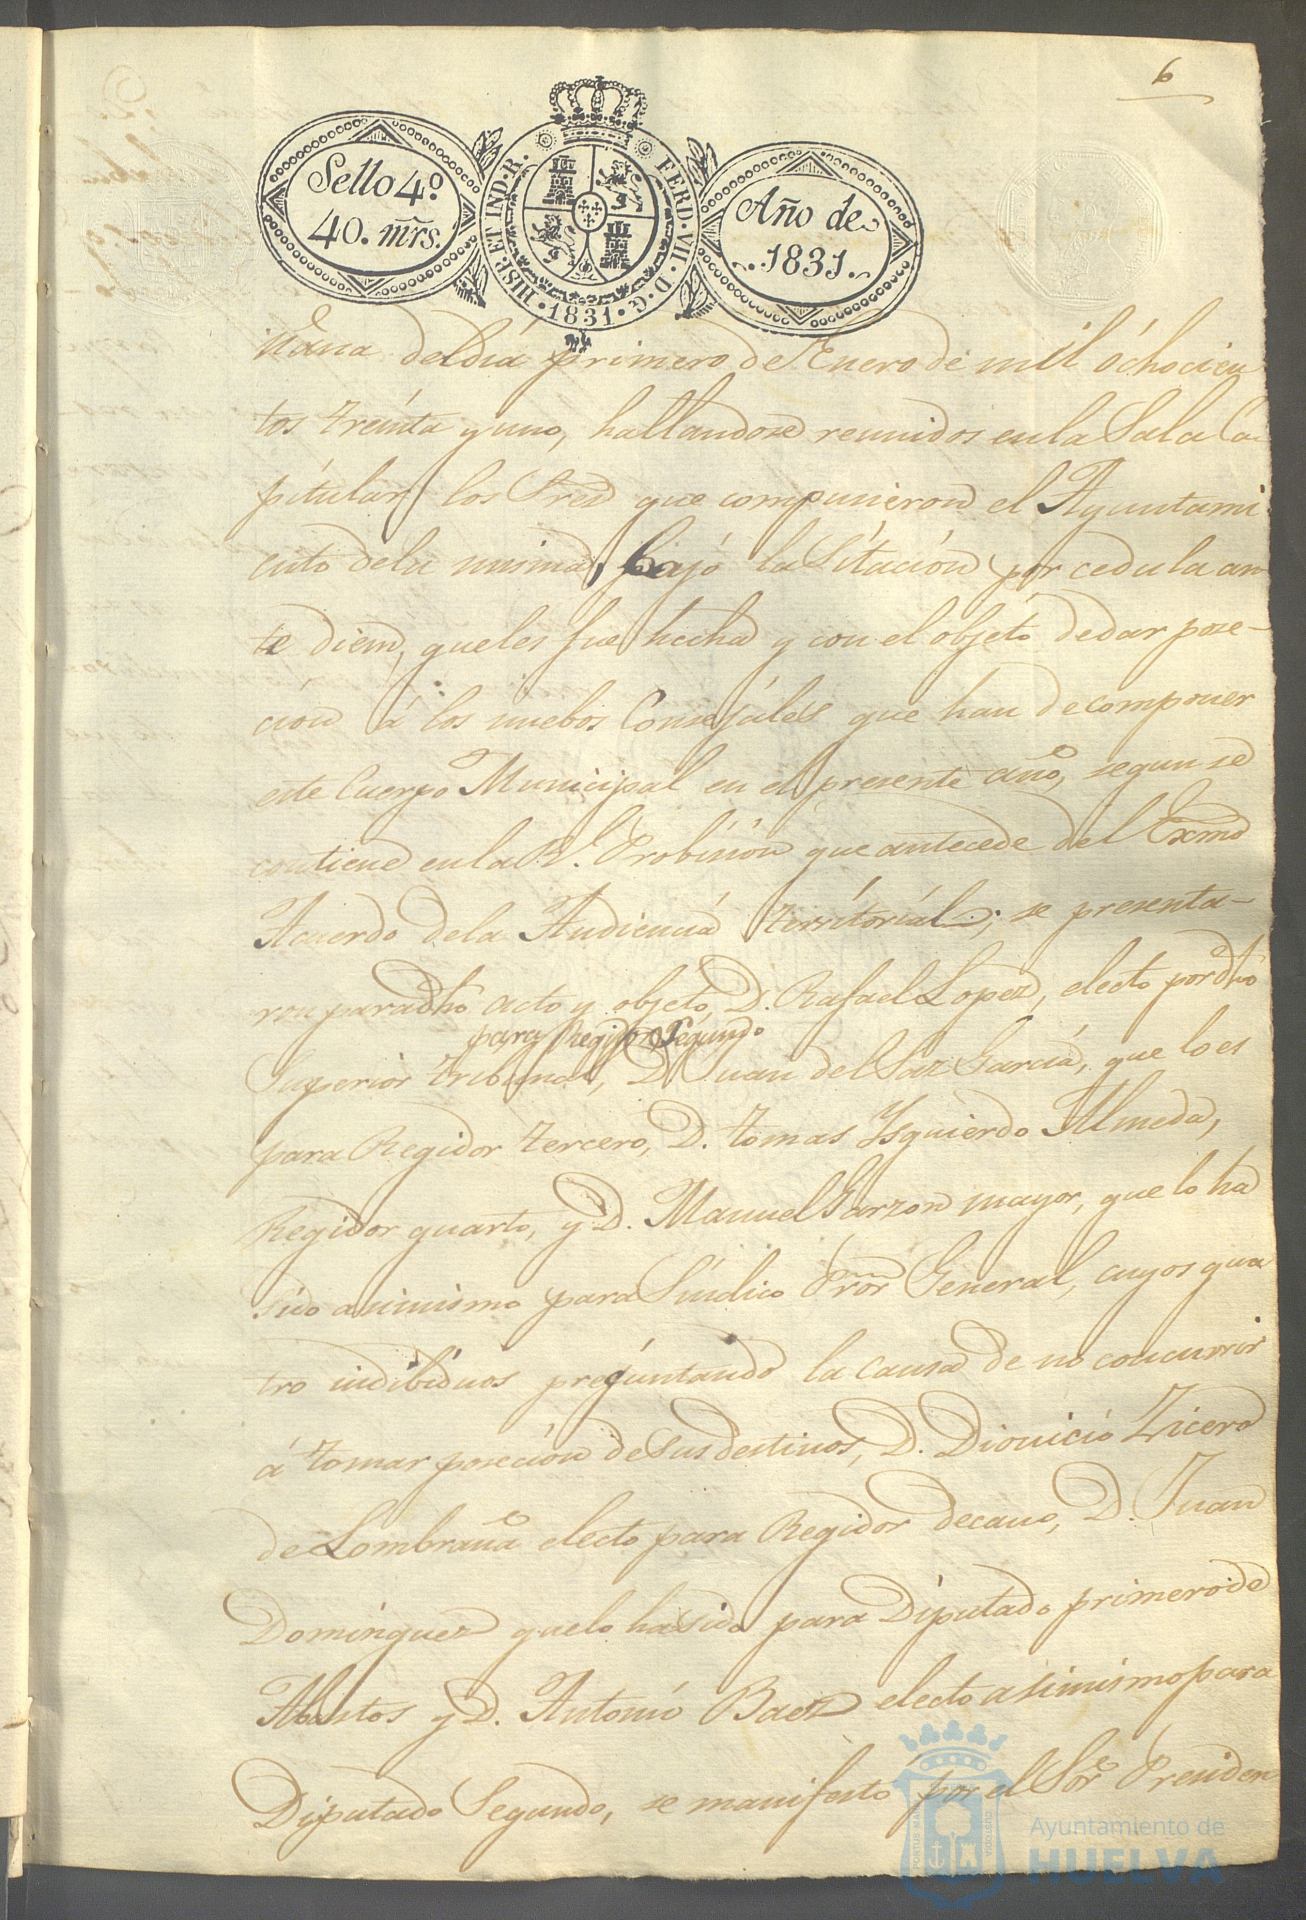 6
Sello 4º
40. mrs.
HISP. ET IND. R. FERD. VII. D. G.
1831
Año de
1831
ñana del dia primero de Enero de mil óchocien
tos treinta y uno, hallandose reunidos en la Sala Ca-
pitular los Sres que compusieron el Ayuntami
ento de la misma, bajó la Sitación por cedula an
te diem, que les fue hecha y con el objetó de dar pose-
cion á los nuebos Consejales que han de componer
este Cuerpo Municipal en el presente año, segun se
contiene en la Rl. Probision que antecede del Exmo
Acuerdo de la Audiencia territorial; se presenta-
ron para dho acto y objeto, D. Rafael Lopez, electo por dho
para Regidor Segundo
Superior tribunal, D. Juan del Saz Garcia, que lo es
para Regidor tercero, D. tomas Ysquierdo Almeda,
Regidor quarto, y D. Manuel Garzon mayor, que lo ha
sido asimismo para Sindico Pror General, cuyos qua
tro indibiduos preguntando la causa de no concurrir
á tomar posecion de sus destinos, D. Dionicio
de Lombraña electo para Regidor decano, D. Juan
Dominguez que lo ha sido para Diputado primero de
Abastos y D. Antonio Baez electo asimismo para
Diputado Segundo, se manifestó por el Sor Presiden
PORTUS MARIS
CUSTODIA
Ayuntamiento de
HUELVA